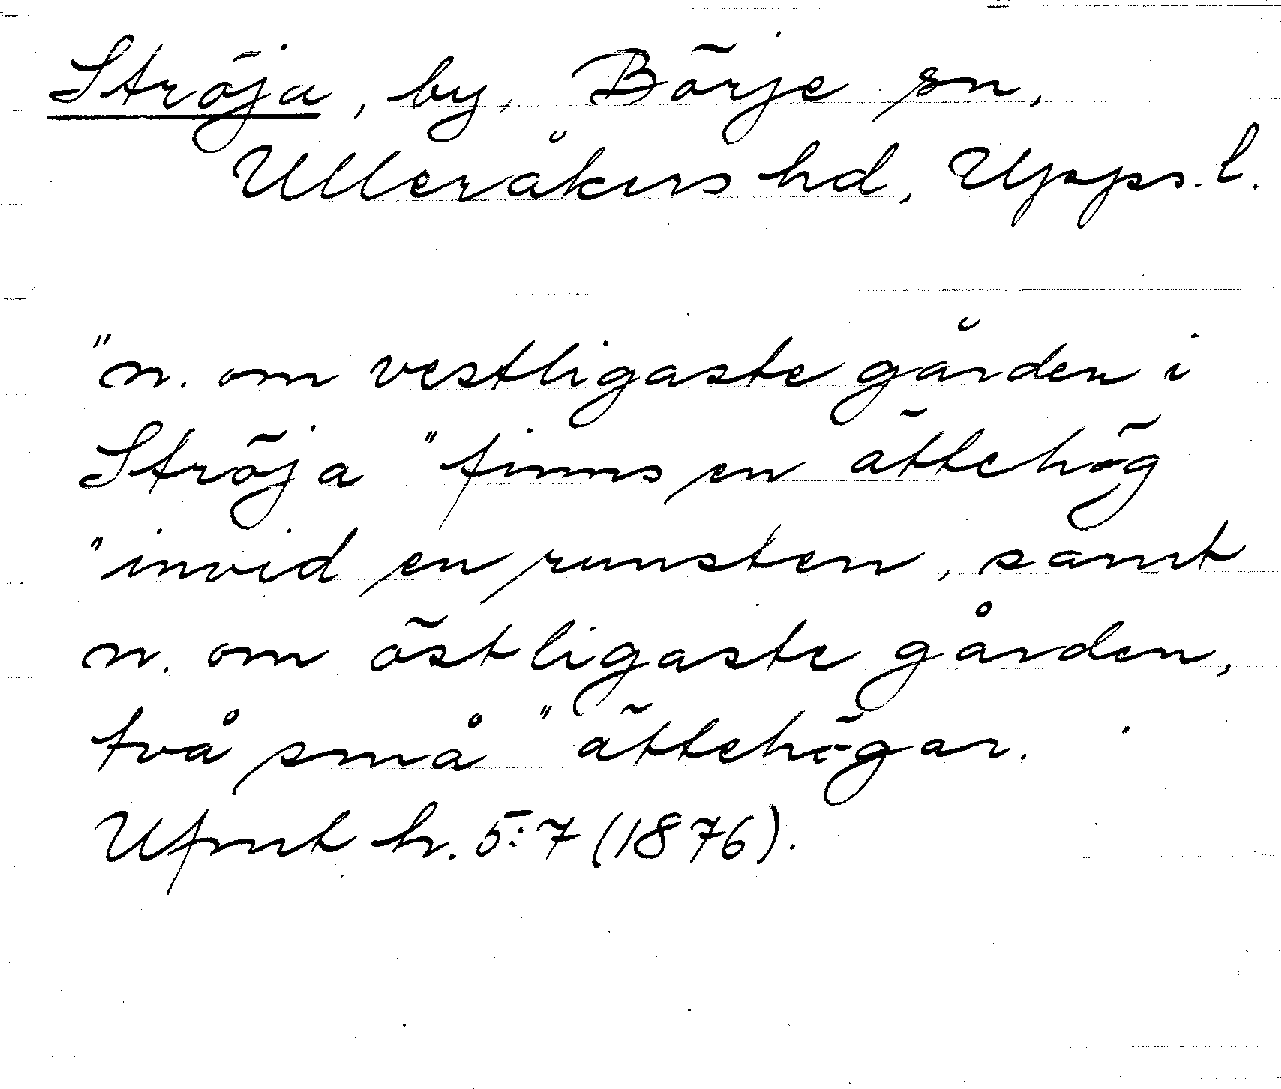 Ströja, by, Börje sn,
Ulleråkers hd, Upps. l.
"n. om vestligaste gården i
Ströja" finns en ättehög
"invid en runsten, samt
n. om östligaste gården,
två små" ättehögar.
Ufmt h. 5:7 (1876).